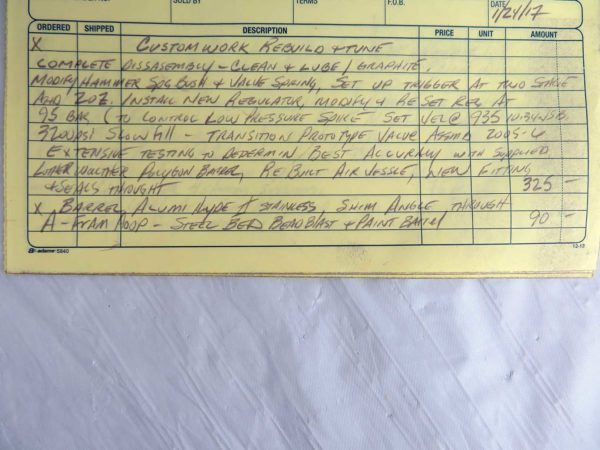 SOLD BY TERMS F.O.B. DATE 1/24/17
ORDERED SHIPPED DESCRIPTION PRICE UNIT AMOUNT
X CUSTOM WORK REBUILD & TUNE
COMPLETE DISSASEMBLY - CLEAN & LUBE / GRAPHITE.
MODIFY HAMMER SPG BUSH & VALVE SPRING, SET UP TRIGGER AT TWO STAGE
AND 20Z. INSTALL NEW REGULATOR, MODIFY & RESET REG AT
95 BAR (TO CONTROL LOW PRESSURE SPIKE SET VEL @ 935
3200PSI SLOW FILL - TRANSITION PROTOTYPE VALVE ASSMB 2005-6
EXTENSIVE TESTING TO DEDERMIN BEST ACCURACY WITH SUPPLIED
LOTHER WALTHER POLYGON BARREL, REBUILT AIR VESSEL, NEW FITTING
& SEALS THROUGHT 325 -
X BARREL, ALUMI HYDE II STAINLESS SHIM ANGLE THROUGH
A-FRAM HOOP - STEEL BED BEAD BLAST & PAINT BARREL 90 -
adams 5840 12-10